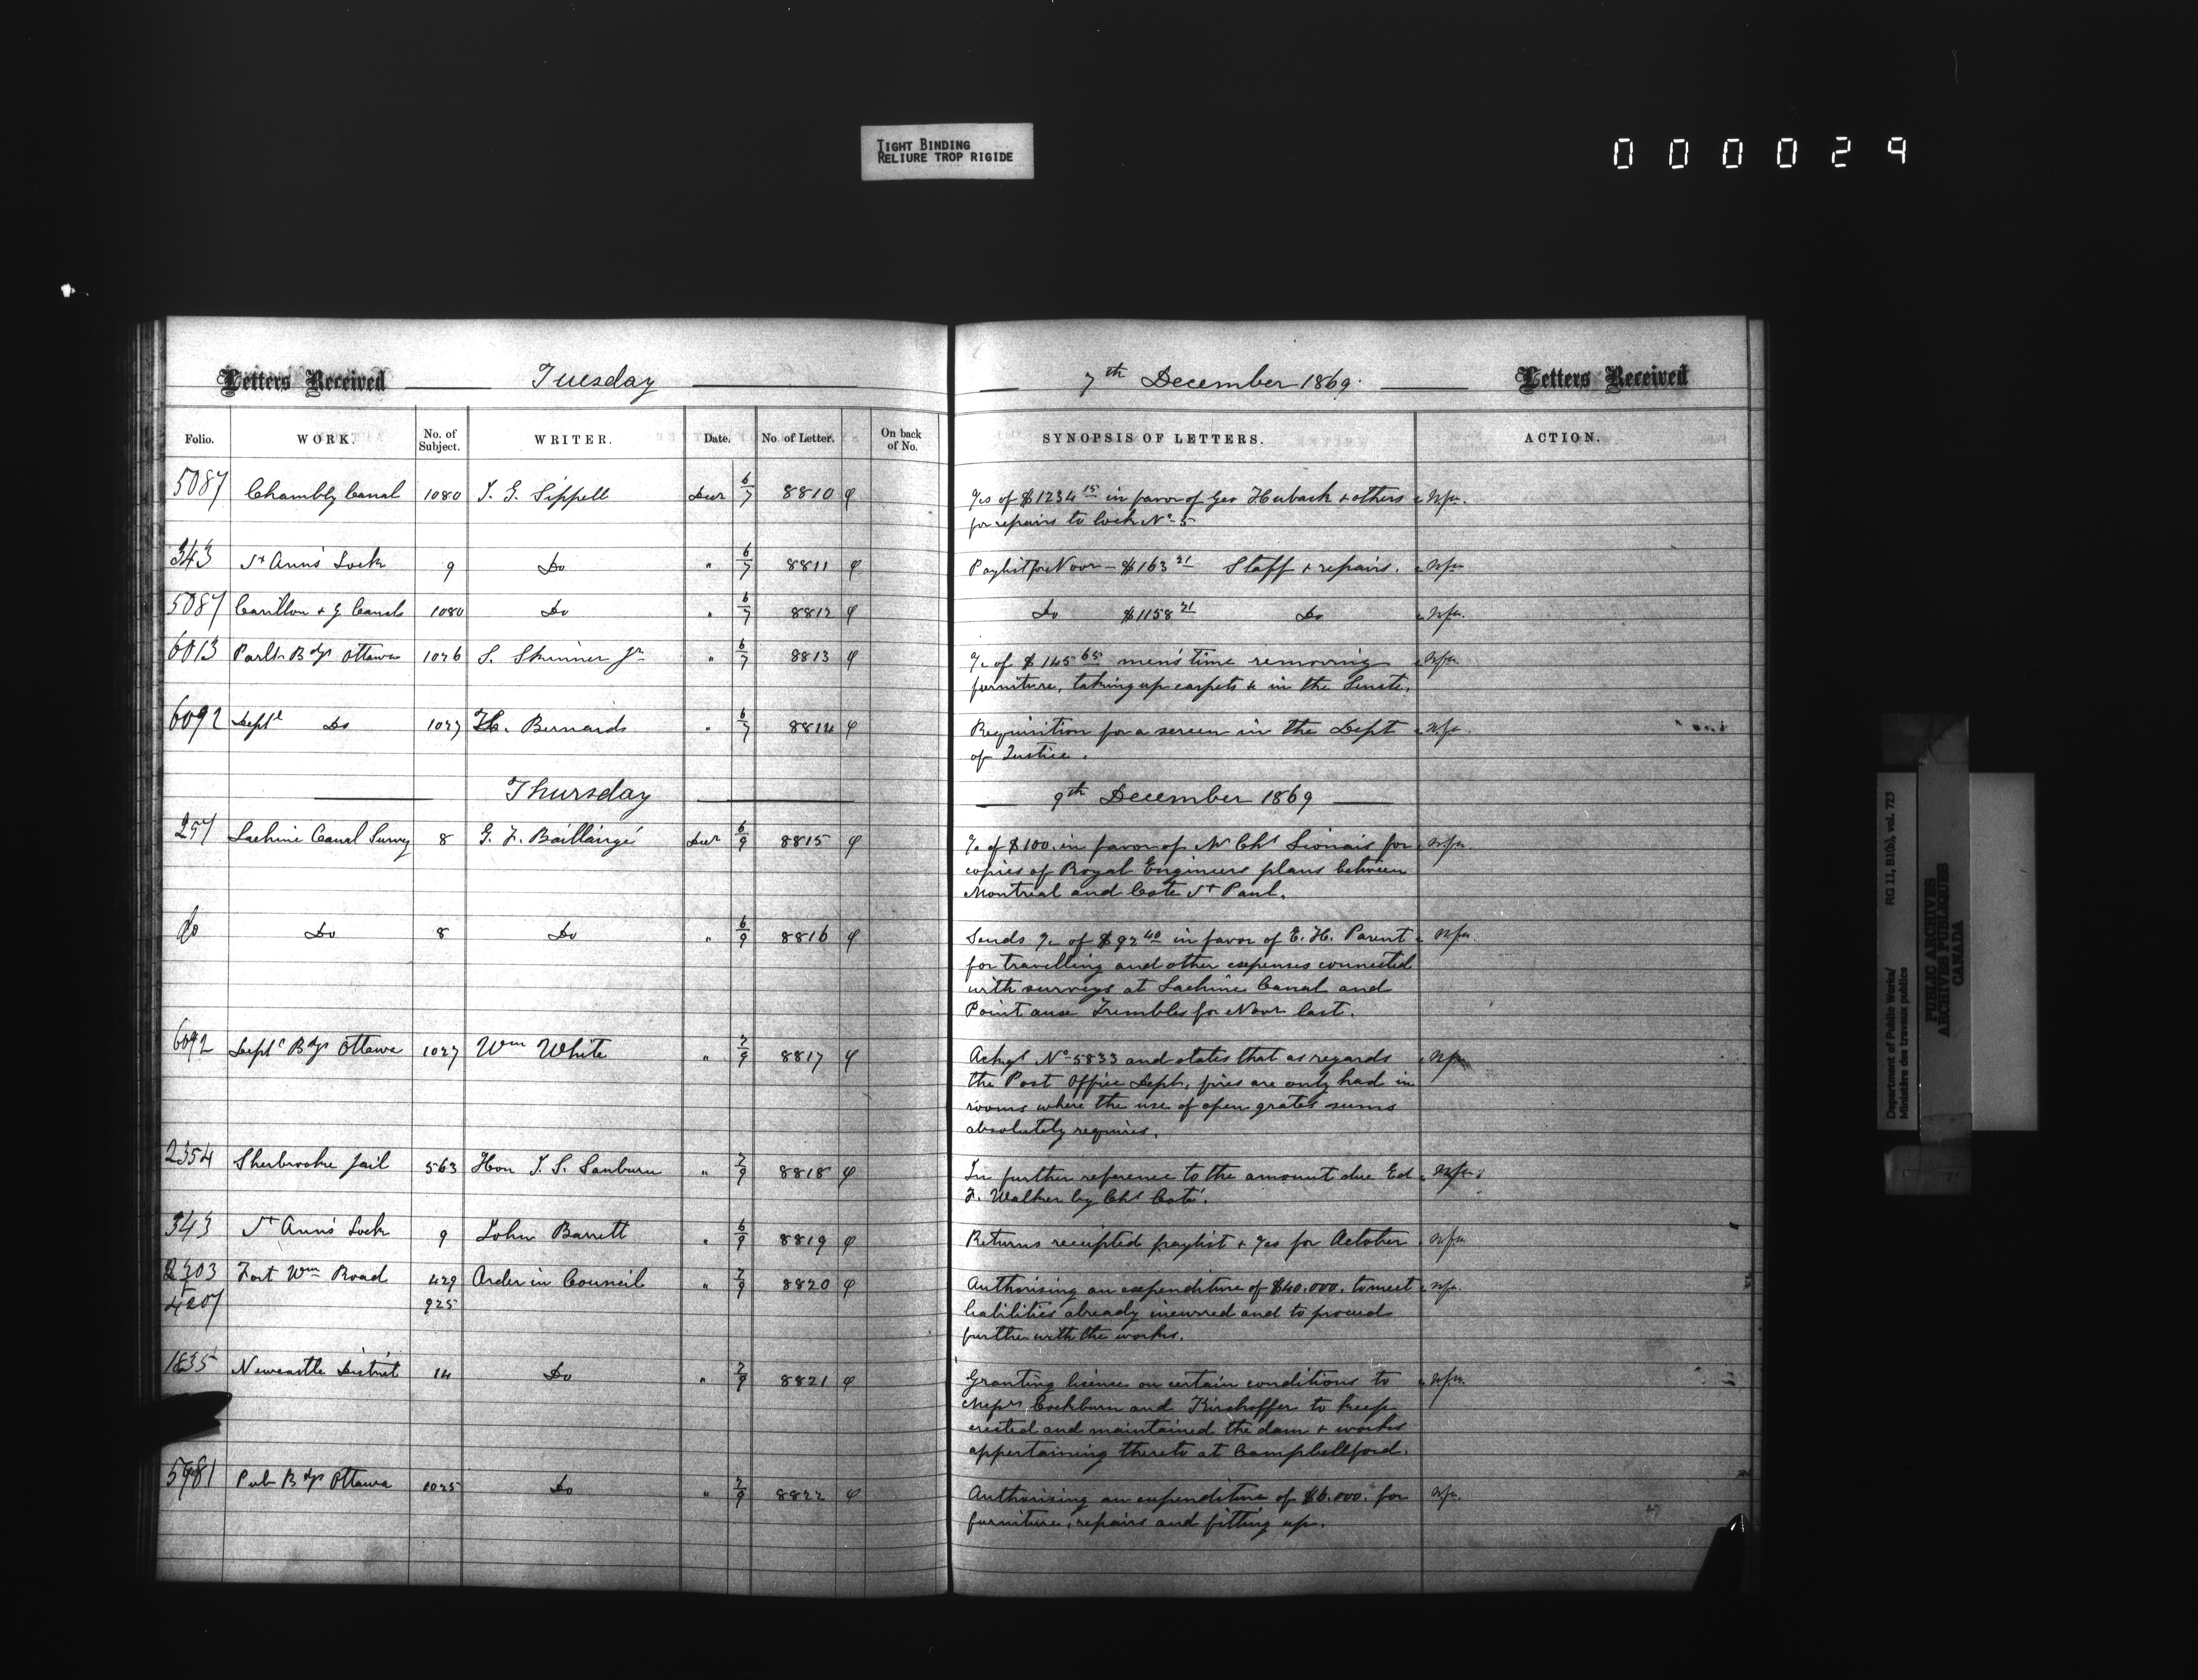 TIGHT BINDING
RELIURE TROP RIGIDE
000029
Letters Received Tuesday 7th December 1869. Letters Received
Folio. WORK. No. of Subject. WRITER. Date. No. of Letter. On back of No. SYNOPSIS OF LETTERS. ACTION.
5087 Chambly Canal 1080 T. G. Sippell Decr 6/7 8810 of $1234 15 in favor of Geo + others
for repairs to lock No 5
343 St Anns Lock 9 Do " 6/7 8811 Paylist for Novr — $163 21 Staff + repairs.
5087 Carillon + G Canals 1080 Do " 6/7 8812 Do $1158 21 Do
6013 Parlt Bdgs Ottawa 1026 S. Skinner Jr " 6/7 8813 of $145 65 men's time removing
furniture, taking up carpets & in the Senate.
6092 Deptl Do 1027 H. Bernard " 6/7 8814 Requisition for a screen in the Dept
of Justice.
Thursday 9th December 1869
257 Lachine Canal Survey 8 G. F. Baillairgé Decr 6/9 8815 of $100. in favor of Mr Chs Lionais for
copies of Royal Engineers plans between
Montreal and Cote St Paul.
Do Do 8 Do " 6/9 8816 Sends of $92 40 in favor of E. H. Parent
for travelling and other expenses connected
with surveys at Lachine Canal and
Point aux Trembles for Novr last.
6092 Deptl Bdgs Ottawa 1027 Wm White " 7/9 8817 Ackgs No 5833 and states that as regards
the Post Office Dept, fires are only had in
rooms where the use of open grates seems
absolutely requires.
2354 Sherbrooke Jail 563 Hon J. S. Sanburn " 7/9 8818 In further reference to the amount due Ed
F. Walker by Chs Coté.
343 St Anns Lock 9 John Barrett " 6/9 8819 Returns receipted paylist + for October
2303 Fort Wm Road 429 Order in Council " 7/9 8820 Authorising an expenditure of $40.000. to meet
4207 925 liabilities already incurred and to proceed
further with the works.
1835 Newcastle District 14 Do " 7/9 8821 Granting license on certain conditions to
Messrs Cockburn and Kirchoffer to keep
erected and maintained the dam + works
appertaining thereto at Campbellford.
5981 Pub Bdgs Ottawa 1025 Do " 7/9 8822 Authorising an expenditure of $6.000. for
furniture, repairs and fitting up.
Department of Public Works/ RG 11, B1(b), vol. 723
Ministère des travaux publics
PUBLIC ARCHIVES
ARCHIVES PUBLIQUES
CANADA